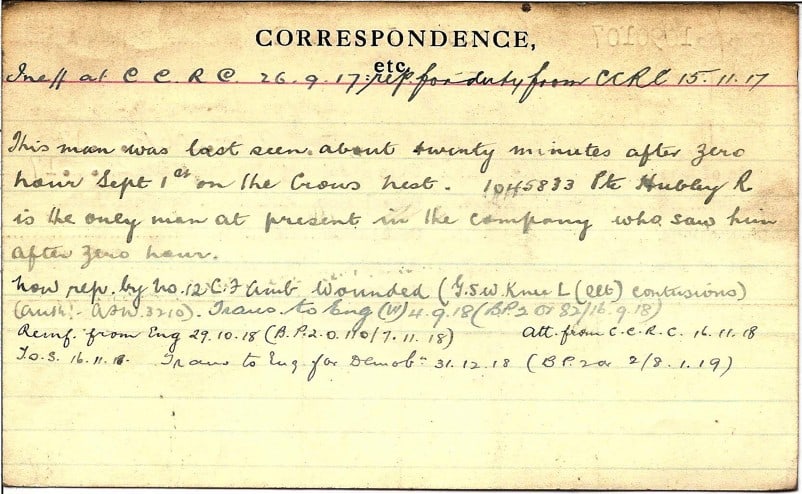 CORRESPONDENCE,
etc.
Ineff at C C R C. 26.9.17: rep. for duty from CCRC 15.11.17
This man was last seen about twenty minutes after zero
hour Sept 1st on the Crows nest. 1045833 Pte Hubley R
is the only man at present in the company who saw him
after zero hour.
now rep. by No. 12 C.F Amb Wounded (G.S.W. Knee L (  ) contusions)
(Auth:- A.F.W. 3210). Trans to Eng (W) 4.9.18 (B.P. 2 OI 82/16.9.18)
Reinf. from Eng 29.10.18 (B.P. 2.0.110/7.11.18) Att. from C.C.R.C. 16.11.18
T.O.S. 16.11.18. Trans to Eng. for Demobn 31.12.18 (B.P. 2 2/8.1.19)